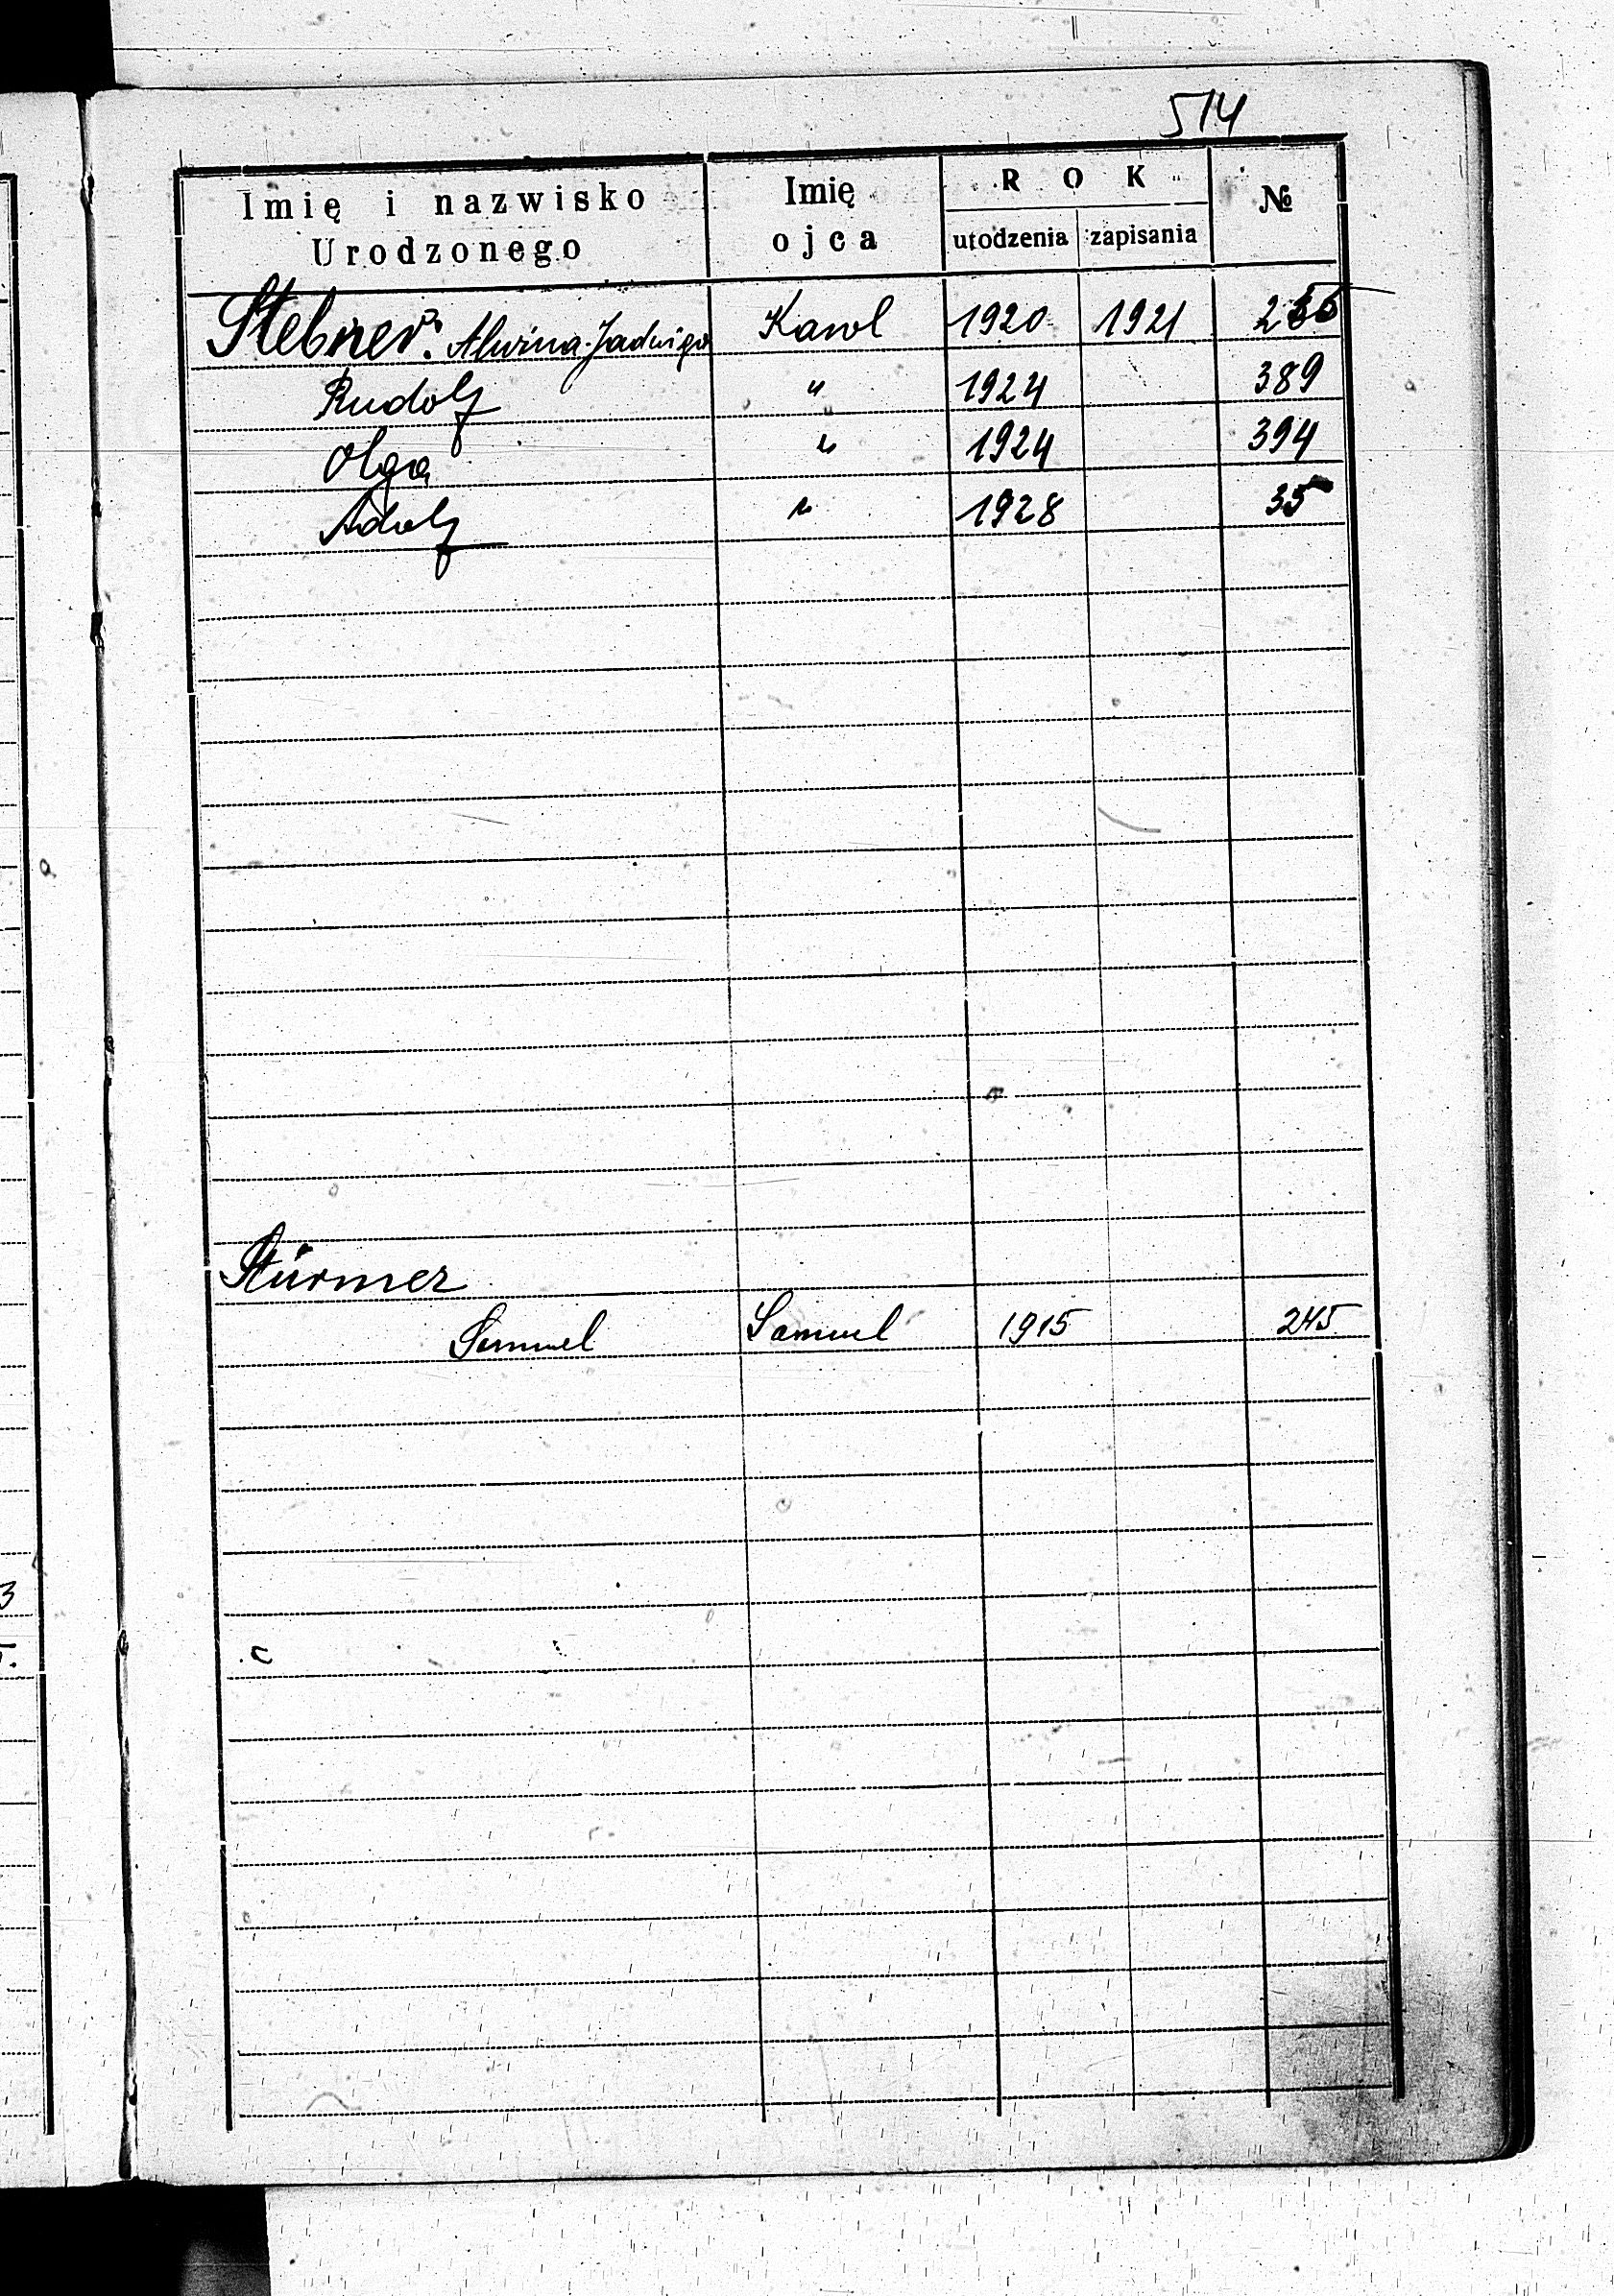 514
Imię i nazwisko Urodzonego Imię ojca ROK urodzenia zapisania №
Stebner. Alwina Jadwiga Karol 1920 1921
Rudolf " 1924 389
Olga " 1924 394
Adolf " 1928 35
Stürmer
Samuel Samuel 1915 245